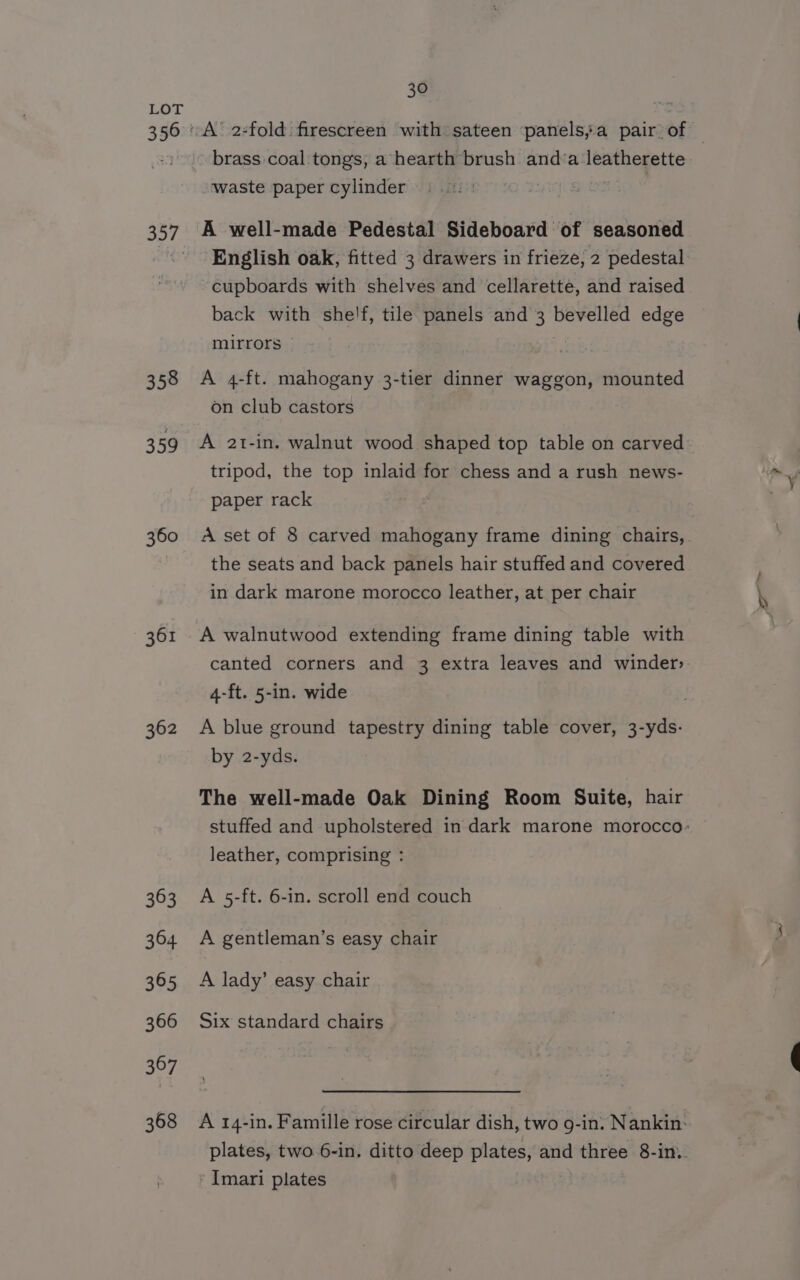 30
LOT
356 A 2-fold firescreen with sateen panels, a pair of
brass coal tongs, a hearth brush and a leatherette
waste paper cylinder
357 A well-made Pedestal Sideboard of seasoned
English oak, fitted 3 drawers in frieze, 2 pedestal
cupboards with shelves and cellarette, and raised
back with shelf, tile panels and 3 bevelled edge
mirrors
358 A 4-ft. mahogany 3-tier dinner waggon, mounted
on club castors
359 A 21-in. walnut wood shaped top table on carved
tripod, the top inlaid for chess and a rush news-
paper rack
360 A set of 8 carved mahogany frame dining chairs,
the seats and back panels hair stuffed and covered
in dark marone morocco leather, at per chair
361 A walnutwood extending frame dining table with
canted corners and 3 extra leaves and winder,
4-ft. 5-in. wide
362 A blue ground tapestry dining table cover, 3-yds.
by 2-yds.
The well-made Oak Dining Room Suite, hair
stuffed and upholstered in dark marone morocco
leather, comprising :
363 A 5-ft. 6-in. scroll end couch
364 A gentleman's easy chair
365 A lady' easy chair
366 Six standard chairs
367
368 A 14-in. Famille rose circular dish, two 9-in. Nankin
plates, two 6-in. ditto deep plates, and three 8-in.
Imari plates